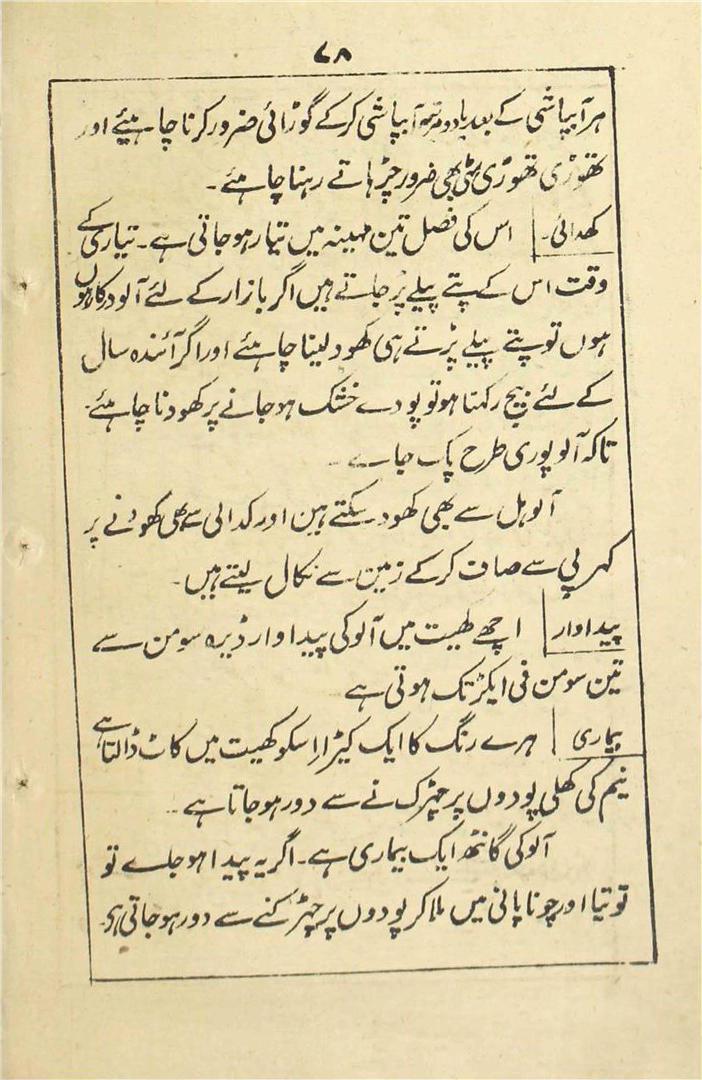 ۷۸
ہر آبپاشی کے بعد یا دو مرتبہ آبپاشی کرکے گوڑائی ضرور کرنا چاہیئے اور
تھوڑی تھوڑی مٹی بھی ضرور چڑہاتے رہنا چاہئے ۔
کھدائی۔ اس کی فصل تین مہینہ میں تیار ہو جاتی ہے ۔ تیاری کے
وقت اس کے پتے پیلے پڑ جاتے ہیں اگر بازار کے لئے آلو درکار
ہوں تو پتے پیلے پڑتے ہی کھود لینا چاہئے اور اگر آئندہ سال
کے لئے بیج رکہنا ہو تو پودے خشک ہو جانے پر کھودنا چاہئے۔
تاکہ آلو پوری طرح پک جاے ۔
آلو ہل سے بھی کھود سکتے ہین اور کدالی سے بھی کھودنے پر
کہرپی سے صاف کرکے زمین سے نکال لیتے ہیں۔
پیداوار اچھے کھیت میں آلو کی پیداوار ڈیڑہ سومن سے
تین سومن فی ایکڑ تک ہوتی ہے
بیماری ہرے رنگ کا ایک کیڑا اسکو کھیت میں کاٹ ڈالتا ہے
نیم کی کھلی پودوں پر چھڑکنے سے دور ہو جاتا ہے ۔
آلو کی گانٹھ ایک بیماری ہے ۔ اگر یہ پیدا ہو جاے تو
توتیا اور چونا پانی میں ملا کر پودوں پر چھڑکنے سے دور ہو جاتی ہی۔